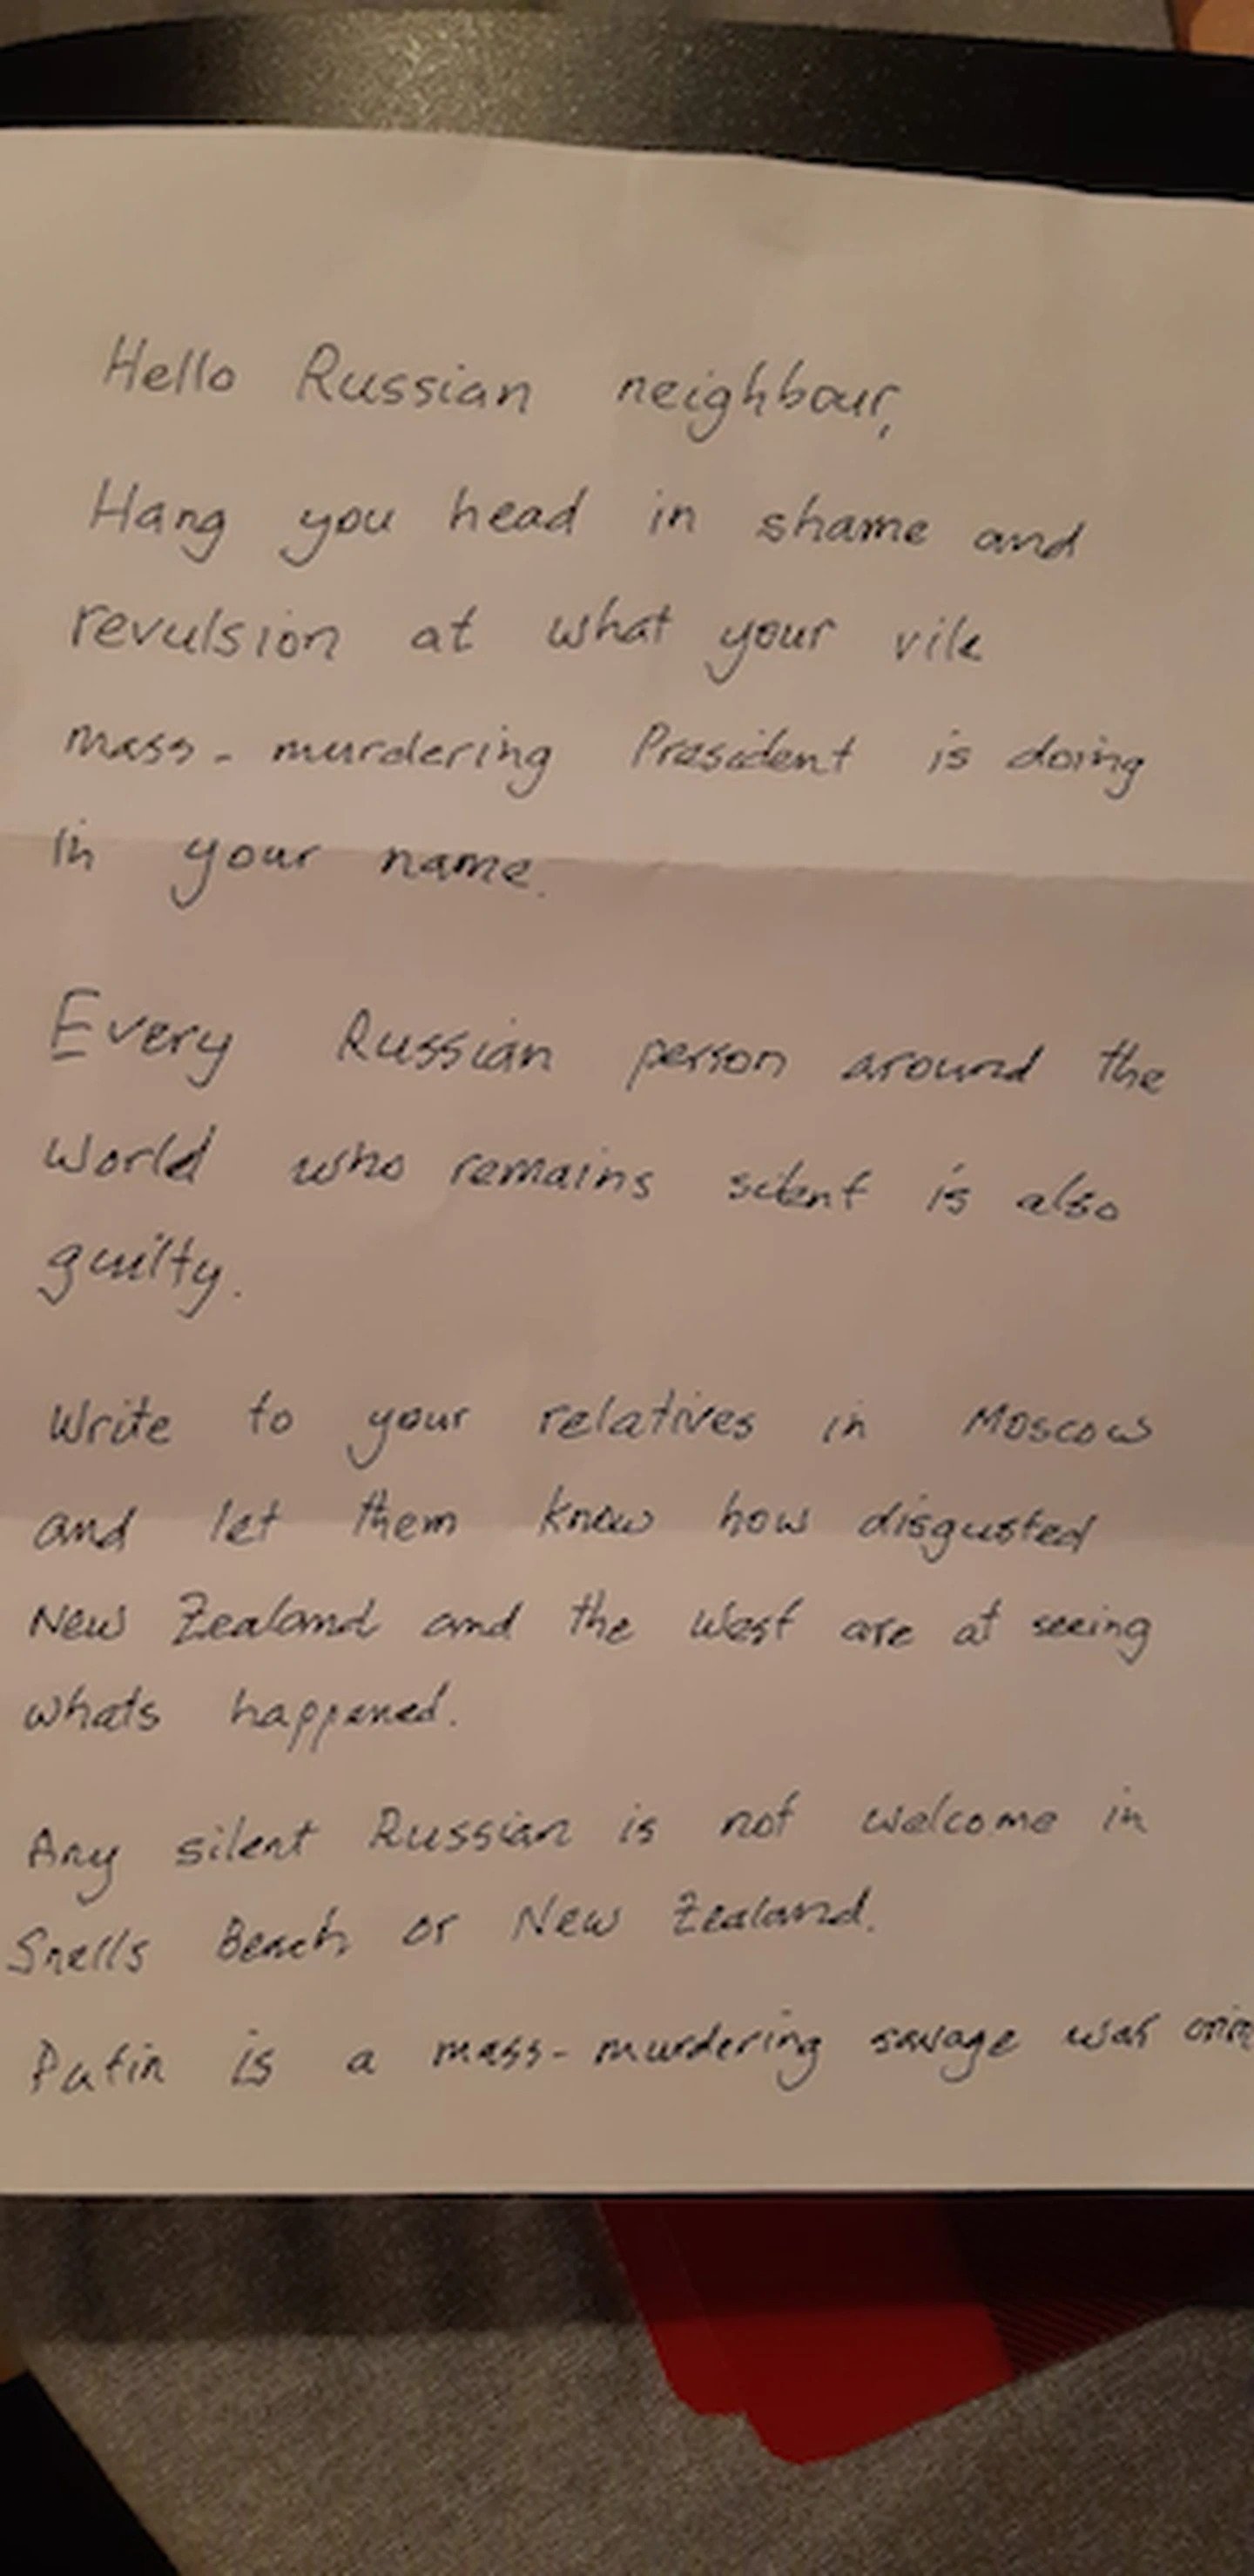 Hello Russian neighbour,
Hang you head in shame and
revulsion at what your vile
mass-murdering President is doing
in your name.
Every Russian person around the
world who remains silent is also
guilty.
Write to your relatives in Moscow
and let them know how disgusted
New Zealand and the West are at seeing
whats happened.
Any silent Russian is not welcome in
Snells Beach or New Zealand.
Putin is a mass-murdering savage war